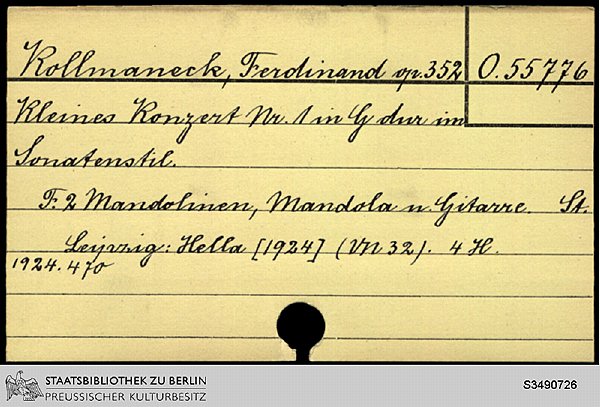 Kollmaneck, Ferdinand op. 352
O. 55776
Kleines Konzert Nr. 1 in G dur im
Sonatenstil.
F. 2 Mandolinen, Mandola u. Gitarre. St.
Leipzig: Hella [1924] (VN 32). 4 H.
1924.470
STAATSBIBLIOTHEK ZU BERLIN
PREUSSISCHER KULTURBESITZ
S3490726